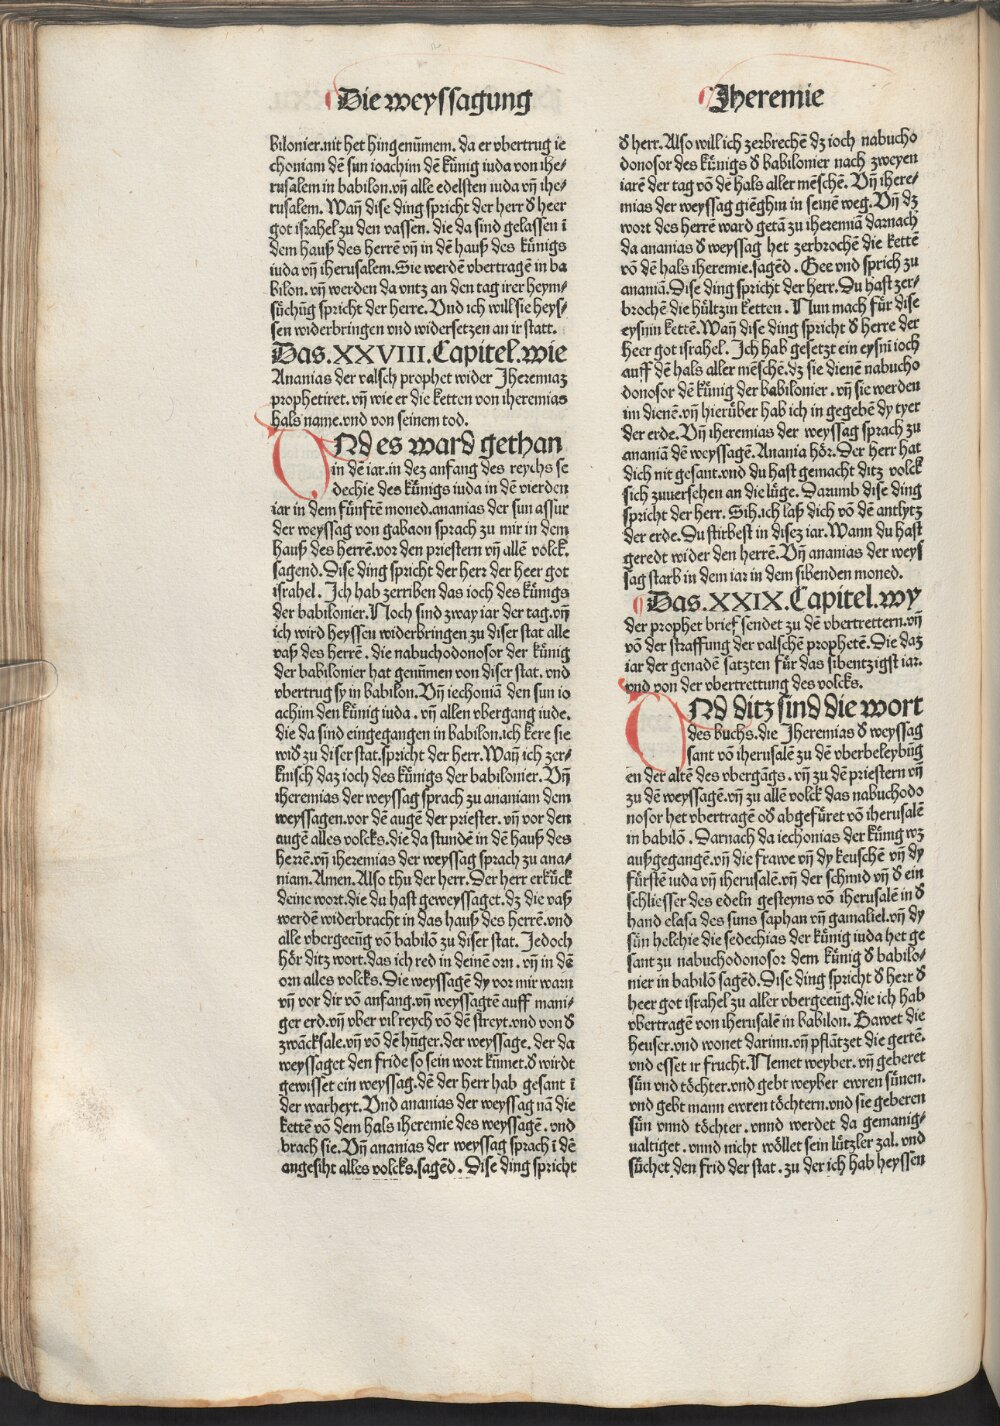 Die weyssagung
Jheremie
bilonier.nit het hingenūmem. da er vbertrug ie
choniam dē sun ioachim dē künig iuda von ihe⸗
rusalem in babilon.vñ alle edelsten iuda vñ ihe⸗
rusalem. Wañ dise ding spricht der herr d heer
got israhel zu den vassen. die da sind gelassen ī
dem hauß des herrē vñ in dē hauß des künigs
iuda vñ iherusalem.Sie werdē vbertragē in ba
bilon.vñ werden da vntz an den tag irer heym⸗
sůchūg spricht der herre.Vnd ich will sie heys⸗
sen widerbringen vnd widersetzen an ir statt.
Das.XXVIII.Capitel.wie
Ananias der valsch prophet wider Jheremiaz
prophetiret. vñ wie er die ketten von iheremias
hals name.vnd von seinem tod.
VNd es ward gethan
in dē iar.in dez anfang des reychs se
dechie des künigs iuda in dē vierden
iar in dem fünftē moned.ananias der sun assur
der weyssag von gabaon sprach zu mir in dem
hauß des herrē.vor den priestern vñ allē volck.
sagend.Dise ding spricht der herr der heer got
israhel. Ich hab zerriben das ioch des künigs
der babilonier.Noch sind zway iar der tag.vñ
ich wird heyssen widerbringen zu diser stat alle
vaß des herrē. die nabuchodonosor der künig
der babilonier hat genūmen von diser stat. vnd
vbertrug sy in babilon.Vñ iechoniā den sun io
achim den künig iuda. vñ allen vbergang iude.
die da sind eingegangen in babilon.ich kere sie
wid zu diser stat.spricht der herr.Wañ ich zer⸗
knisch daz ioch des künigs der babilonier.Vñ
iheremias der weyssag sprach zu ananiam dem
weyssagen.vor dē augē der priester. vñ vor den
augē alles volcks.die da stundē in dē hauß des
herrē.vñ iheremias der weyssag sprach zu ana⸗
niam.Amen.Also thu der herr.Der herr erkück
deine wort.die du hast geweyssaget.dz die vaß
werdē widerbracht in das hauß des herrē.vnd
alle vbergeeūg vō babilō zu diser stat. Jedoch
hör ditz wort.das ich red in deinē orn. vñ in dē
orn alles volcks.Die weyssagē dy vor mir warn
vñ vor dir vō anfang.vñ weyssagtē auff mani⸗
ger erd.vñ vber vil reych vō dē streyt.vnd von d
zwäcksale.vñ vō dē hūger.der weyssage. der da
weyssaget den fride so sein wort kūmet.d wirdt
gewisset ein weyssag.dē der herr hab gesant ī
der warheyt. Vnd ananias der weyssag nā die
kettē vō dem hals iheremie des weyssagē. vnd
brach sie. Vñ ananias der weyssag sprach ī dē
angesiht alles volcks.sagēd. Dise ding spricht
d herr. Also will ich zerbrechē dz ioch nabucho
donosor des künigs d babilonier nach zweyen
iarē der tag vō dē hals aller mēschē. Vñ ihere⸗
mias der weyssag giēghin in seinē weg. Vñ dz
wort des herrē ward getā zu iheremiā darnach
da ananias d weyssag het zerbrochē die kettē
vō dē hals iheremie.sagēd. Gee vnd sprich zu
ananiā.Dise ding spricht der herr. Du hast zer⸗
brochē die hültzin ketten. Nun mach für dise
eysnin kettē.Wañ dise ding spricht d herre der
heer got israhel. Ich hab gesetzt ein eysnī ioch
auff dē hals aller mēschē.dz sie dienē nabucho
donosor dē künig der babilonier. vñ sie werden
im dienē.vñ hierüber hab ich in gegebē dy tyer
der erde. Vñ iheremias der weyssag sprach zu
ananiā dē weyssagē. Anania hör. Der herr hat
dich nit gesant.vnd du hast gemacht ditz volck
sich zuuersehen an die lüge. Darumb dise ding
spricht der herr. Sih.ich laß dich vō dē antlytz
der erde. Du stirbest in disez iar. Wann du hast
geredt wider den herrē. Vñ ananias der weys
sag starb in dem iar in dem sibenden moned.
Das.XXIX.Capitel.wy
der prophet brief sendet zu dē vbertrettern.vñ
vō der straffung der valschē prophetē. Die daz
iar der genadē satzten für das sibentzigst iar.
vnd von der vbertrettung des volcks.
VNd ditz sind die wort
des buchs.die Jheremias d weyssag
sant vō iherusalē zu dē vberbeleybūg
en der altē des vbergāgs. vñ zu dē priestern vñ
zu dē weyssagē.vñ zu allē volck das nabuchodo
nosor het vbertragē od abgefüret vō iherusalē
in babilō. Darnach da iechonias der künig wz
außgegangē.vñ die frawe vñ dy keuschē vñ dy
fürstē iuda vñ iherusalē.vñ der schmid vñ d ein
schliesser des edeln gesteyns vō iherusalē in d
hand elasa des suns saphan vñ gamaliel.vñ dy
sün helchie die sedechias der künig iuda het ge
sant zu nabuchodonosor dem künig d babilo⸗
nier in babilō sagēd.Dise ding spricht d herr d
heer got israhel zu aller vbergeeūg.die ich hab
vbertragē von iherusalē in babilon. Bawet die
heuser.vnd wonet darinn.vñ pflātzet die gertē.
vnd esset ir frucht. Nemet weyber. vñ geberet
sün vnd töchter.vnd gebt weyber ewren sünen.
vnd gebt mann ewren töchtern.vnd sie geberen
sün vnnd töchter. vnnd werdet da gemanig⸗
ualtiget. vnnd nicht wöllet sein lützler zal. vnd
sůchet den frid der stat. zu der ich hab heyssen